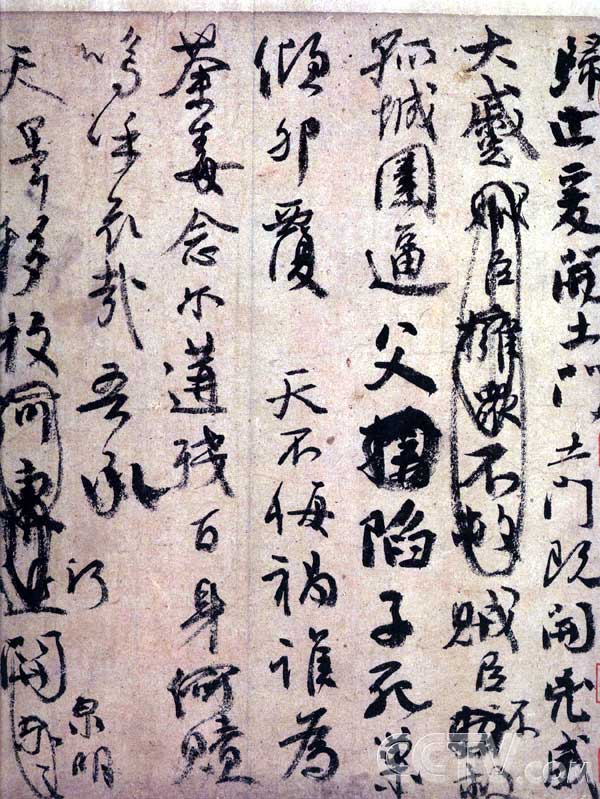 歸止爰開土門土門既開兇威
大蹙賊臣擁眾不救賊臣不救
孤城圍逼父陷子死巢
傾卵覆天不悔禍誰為
荼毒念爾遘殘百身何贖
嗚呼哀哉吾承
天澤移牧河東近
泉明
CCTV.com